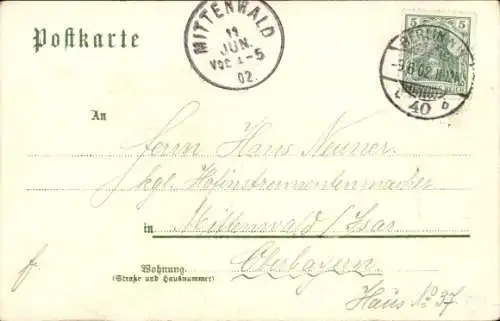 Postkarte
MITTENWALD
JUN.
02.
5 5
BERLIN
40
b
An
Herrn Hans Neuner.
kgl. Hofinstrumentenmacher
in Mittenwald / Isar
Oberbayern.
Wohnung.
(Straße und Hausnummer)
Haus No 37